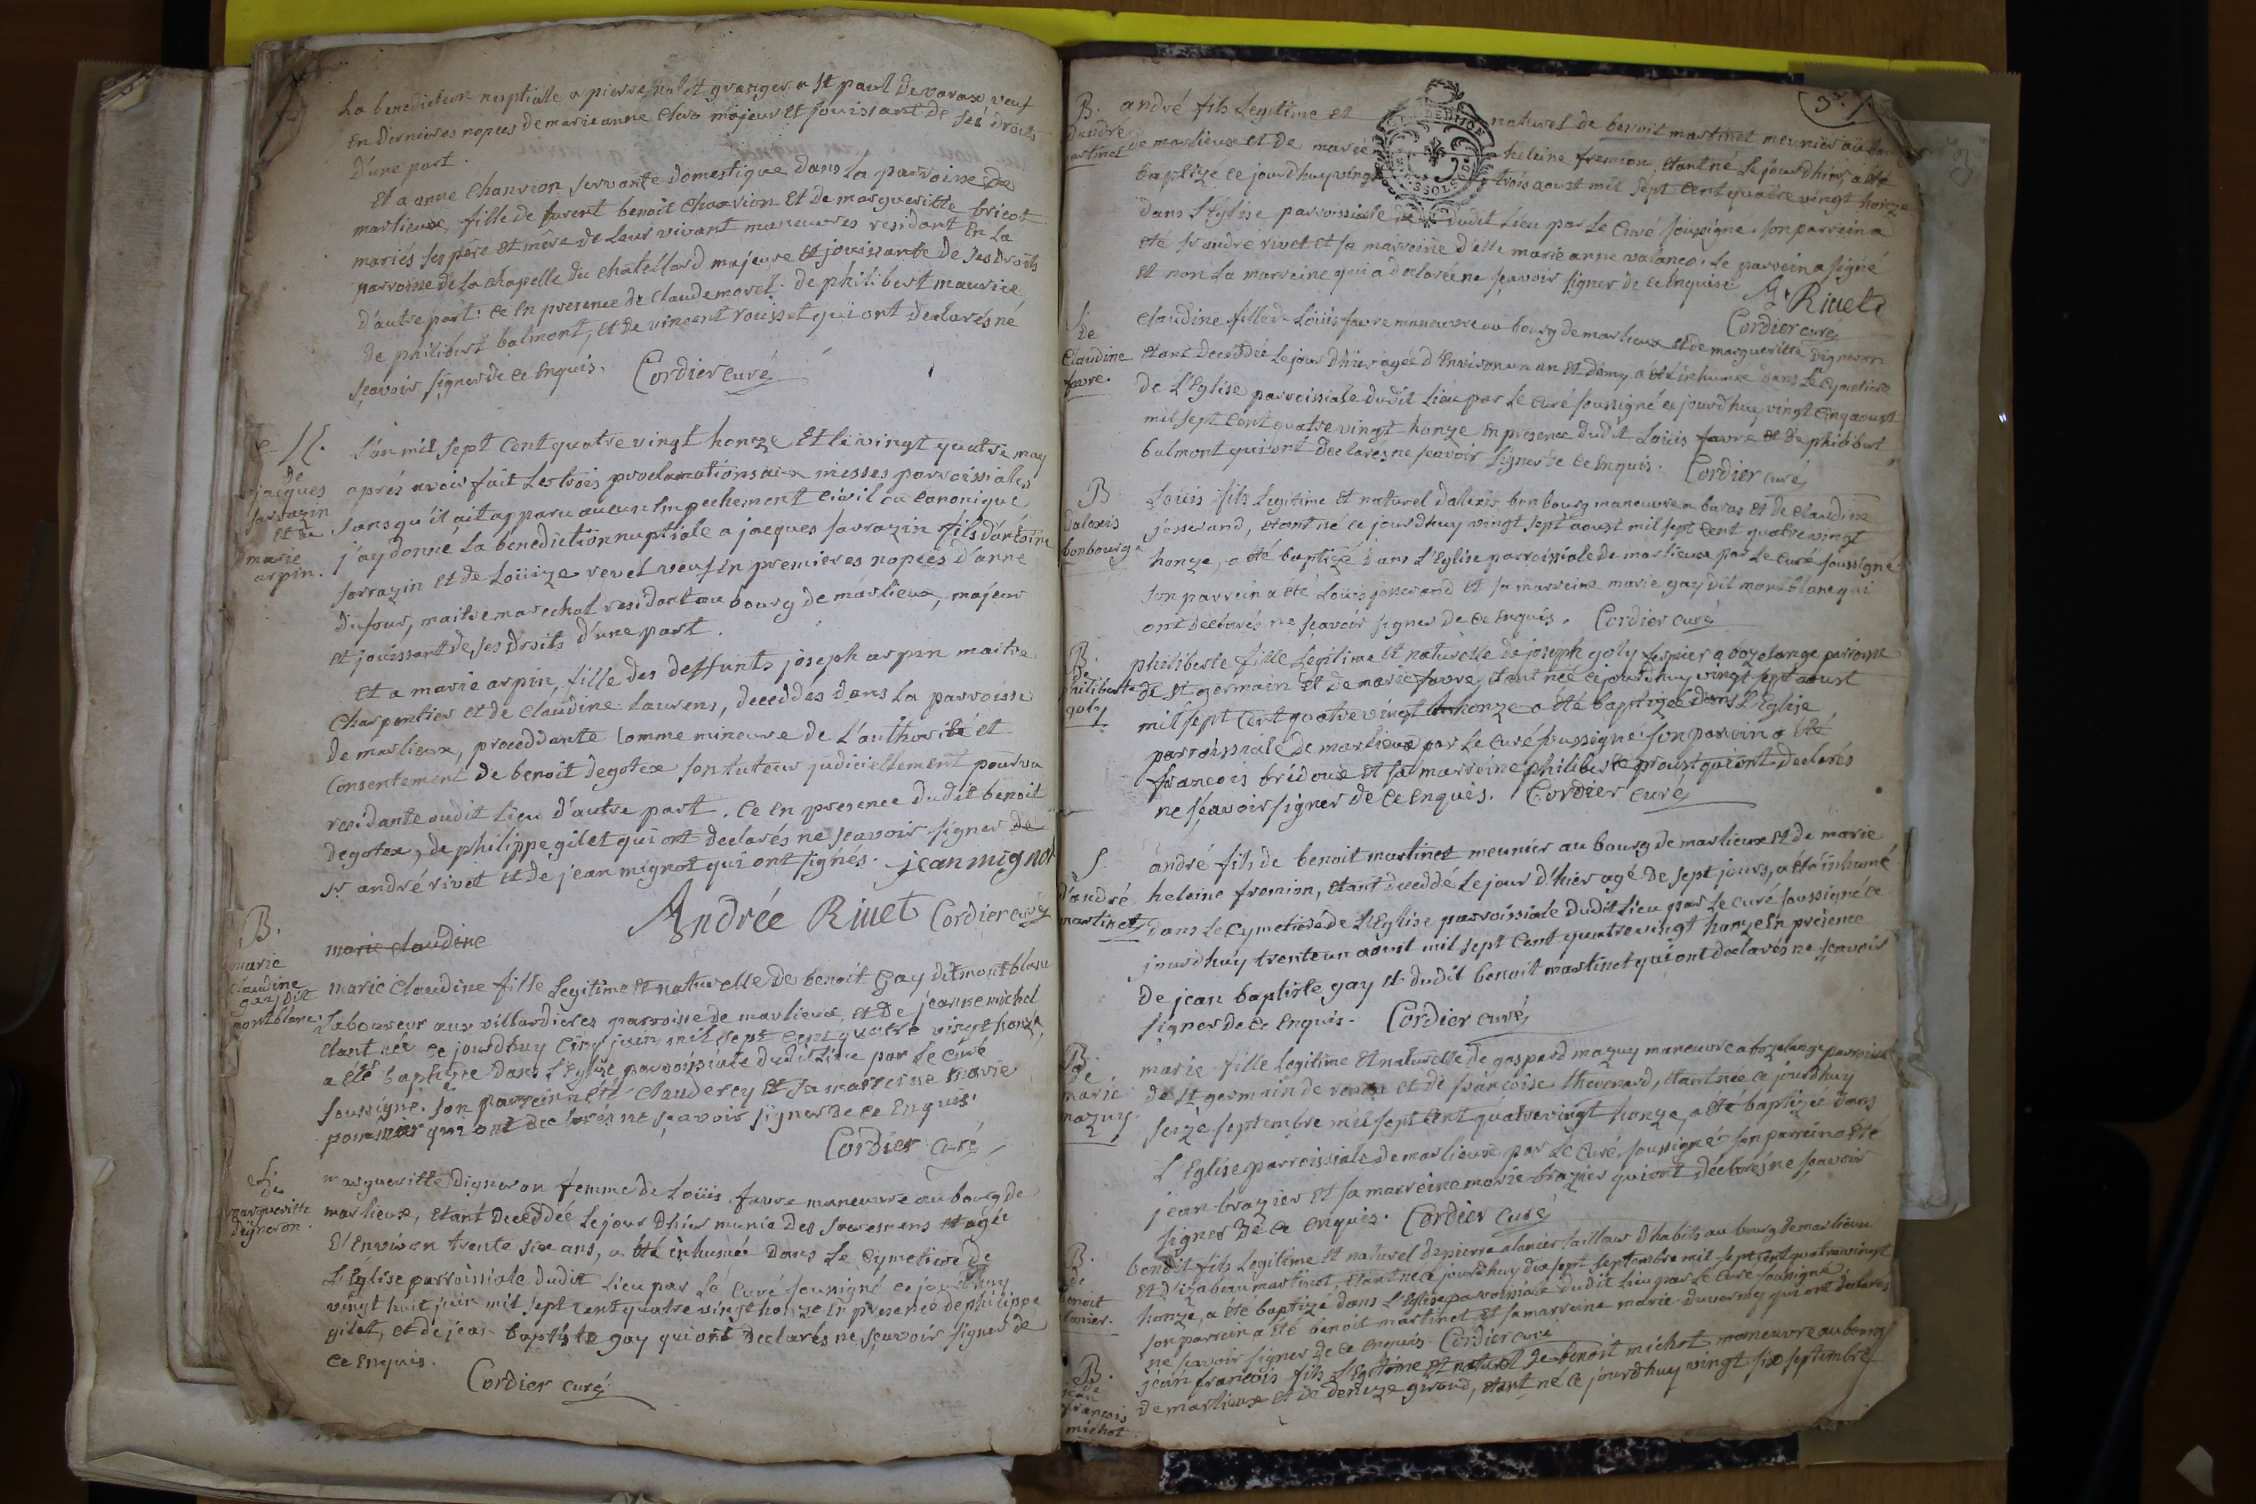 La benediction nuptialle a pierre nalet granger a St paul de varax veuf
En dernieres nopces de marie anne clerc majeur et jouissant de ses droits
d'une part.
Et a anne Chanvion servante domestique dans la parroisse de
marlieux, fille de furent benoit Chanvion Et de margueritte bricot
mariés ses père et mère de leur vivant maneuvres residant En La
parroisse de La chapelle du chatellard majeure et jouissante de ses droits
d'autre part: ce En presence de Claude morel. de philibert maurice
de philibert balmont, et de vincent rousset qui ont declarés ne
sçavoir signer de ce Enquis. Cordier curé
M.
de
jacques
sarrazin
et de
marie
arpin.
L'an mil sept cent quatre vingt honze Et le vingt quatre may
aprés avoir fait Les trois proclamations aux messes parroissiales
sans qu'il ait apparu aucun Empechement civil ou canonique
j'ay donné La bénediction nuptiale a jacques sarrazin fils d'antoine
sarrazin et de Loüize revel veuf En premieres nopces d'anne
dufour, maitre marechal residant au bourg de marlieux, majeur
et joüissant de ses droits d'une part.
Et a marie arpin, fille des deffunts joseph arpin maitre
Charpentier et de Claudine Laurens, deceddes dans La parroisse
de marlieux, proceddante Comme mineure de L'authorité et
Consentement de benoit degotex son tuteur judiciellement pourvu
residante audit Lieu d'autre part. ce En presence dudit benoit
degotex, de philippe gilet qui ont declarés ne sçavoir signer de
sr andré rivet et de jean mignot qui ont signés. jean mignot
Andrée Rivet Cordier curé
B.
marie
claudine
gay dit
montblanc
marie claudine
marie Claudine fille Legitime et naturelle de benoit Gay dit montblanc
Laboureur aux villardieres parroisse de marlieux, et de jeanne michel
Etant née ce jourdhuy Cinq juin mil sept cent quatre vingt honze
a été baptizée dans L'Eglise parroissiale dudit Lieu par Le curé
soussigné. son parrein a été Claude rey Et sa marreine marie
qui ont declarés ne sçavoir signer de ce Enquis.
Cordier curé
S.
de
margueritte
digneron.
margueritte digneron femme de Loüis favre maneuvre au bourg de
marlieux, étant deceddée Le jour d'hier munie des sacremens et agée
d'Environ trente six ans, a été inhumée dans Le cymetiere de
L'Eglise parroissiale dudit Lieu par Le curé soussigné ce jourdhuy
vingt huit juin mil sept cent quatre vingt honze En presence de philippe
gilet, et de jean baptiste gay qui ont declarés ne sçavoir signer de
ce Enquis.
Cordier curé
B.
d'andré
martinet
andré fils Legitime et naturel de benoit martinet meunier au
de marlieux et de marie heleine fremion, étant né Le jour d'hier, a été
baptizé ce jourdhuy vingt trois aoust mil sept Cent quatre vingt honze
dans L'Eglise parroissiale dudit Lieu par Le Curé soussigné. son parrein a
été sr andré rivet et sa marreine d'elle marie anne valance. Le parrein a signé
et non La marreine qui a declarée ne sçavoir signer de ce Enquise
A. Rivet
Cordier curé
S.
de
Claudine
favre.
Claudine fille de Loüis favre maneuvre au bourg de marlieux et de margueritte digneron
étant deceddée Le jour d'hier agée d'Environ un an et demy a été inhumée dans Le cymetiere
de L'Eglise parroissiale dudit Lieu par Le curé soussigné ce jourdhuy vingt cinq aoust
mil sept Cent quatre vingt honze En presence dudit Loüis favre et de philibert
balmont qui ont declarés ne sçavoir signer de ce Enquis. Cordier curé
B
d'alexis
bonbourg
Loüis fils Legitime et naturel d'alexis bonbourg maneuvre a baras et de claudine
josserand, étant né ce jourdhuy vingt sept aoust mil sept Cent quatre vingt
honze, a été baptizé dans L'Eglise parroissiale de marlieux par Le curé soussigné
son parrein a été Loüis josserand et sa marreine marie gay dit montblanc qui
ont declarés ne sçavoir signer de ce Enquis. Cordier curé
B.
de
philiberte
goly
philiberte fille Legitime et naturelle de joseph goly a bozelange parroisse
de St germain et de marie favre, étant née ce jourdhuy vingt sept aoust
mil sept Cent quatre vingt honze a été baptizée dans L'Eglise
parroissiale de marlieux par Le curé soussigné son parrein a été
francois bridoux et sa marreine philiberte proust qui ont declarés
ne sçavoir signer de ce Enquis. Cordier curé
S.
d'andré
martinet
andré fils de benoit martinet meunier au bourg de marlieux et de marie
heleine fremion, étant deceddé Le jour d'hier agé de sept jours, a été inhumé
dans Le cymetiere de L'Eglise parroissiale dudit Lieu par Le curé soussigné ce
jourdhuy trente un aoust mil sept Cent quatre vingt honze En presence
de jean baptiste gay et dudit benoit martinet qui ont declarés ne sçavoir
signer de ce Enquis. Cordier curé
B.
de
marie
mazuy.
marie fille Legitime et naturelle de gaspard mazuy maneuvre a bozelange parroisse
de St germain de et de françoise thevenard, étant née ce jourdhuy
seize septembre mil sept Cent quatre vingt honze, a été baptizée dans
L'Eglise parroissiale de marlieux par Le Curé soussigné son parrein a été
jean brazier et sa marreine marie brazier qui ont declarés ne sçavoir
signer de ce Enquis. Cordier curé
B.
de
benoit
lanier.
benoit fils Legitime et naturel de pierre alanier taillieur d'habits au bourg de marlieux
et d'izabeau martinet, étant né ce jourdhuy dix sept septembre mil sept cent quatre vingt
honze, a été baptizé dans L'Eglise parroissiale dudit Lieu par Le Curé soussigné
son parrein a été benoit martinet et sa marreine marie duvernay qui ont declarés
ne sçavoir signer de ce Enquis Cordier curé
B.
de
jean
françois
michot
jean françois fils Legitime et naturel de benoit michot maneuvre au bourg
de marlieux et de denize giroud, étant né ce jourdhuy vingt six septembre